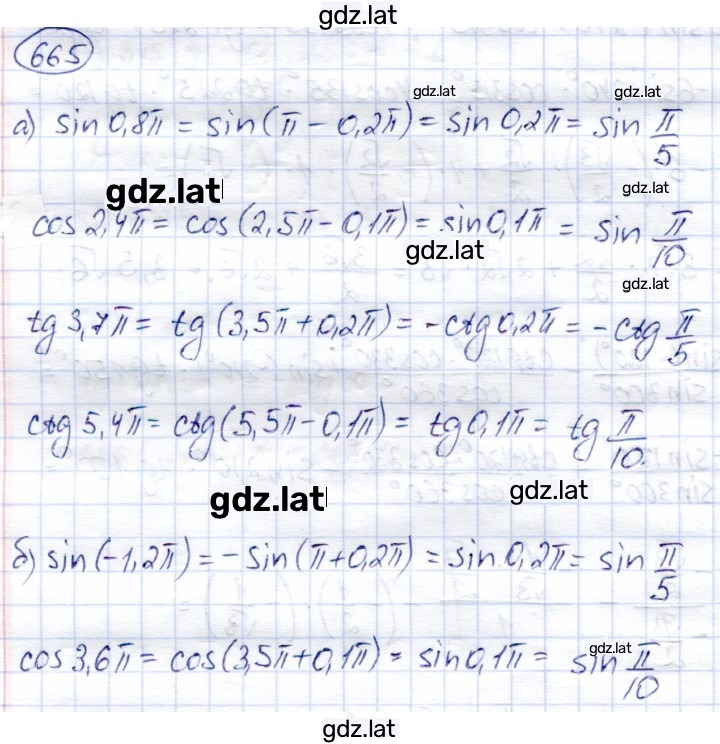 gdz.lat
665
gdz.lat gdz.lat
а) sin 0,8π = sin(π − 0,2π) = sin 0,2π = sin π/5
gdz.lat gdz.lat
cos 2,4π = cos(2,5π − 0,1π) = sin 0,1π = sin π/10
gdz.lat gdz.lat
tg 3,7π = tg(3,5π + 0,2π) = −ctg 0,2π = −ctg π/5
ctg 5,4π = ctg(5,5π − 0,1π) = tg 0,1π = tg π/10
gdz.lat gdz.lat
б) sin(−1,2π) = −sin(π + 0,2π) = sin 0,2π = sin π/5
gdz.lat
cos 3,6π = cos(3,5π + 0,1π) = sin 0,1π = sin π/10
gdz.lat